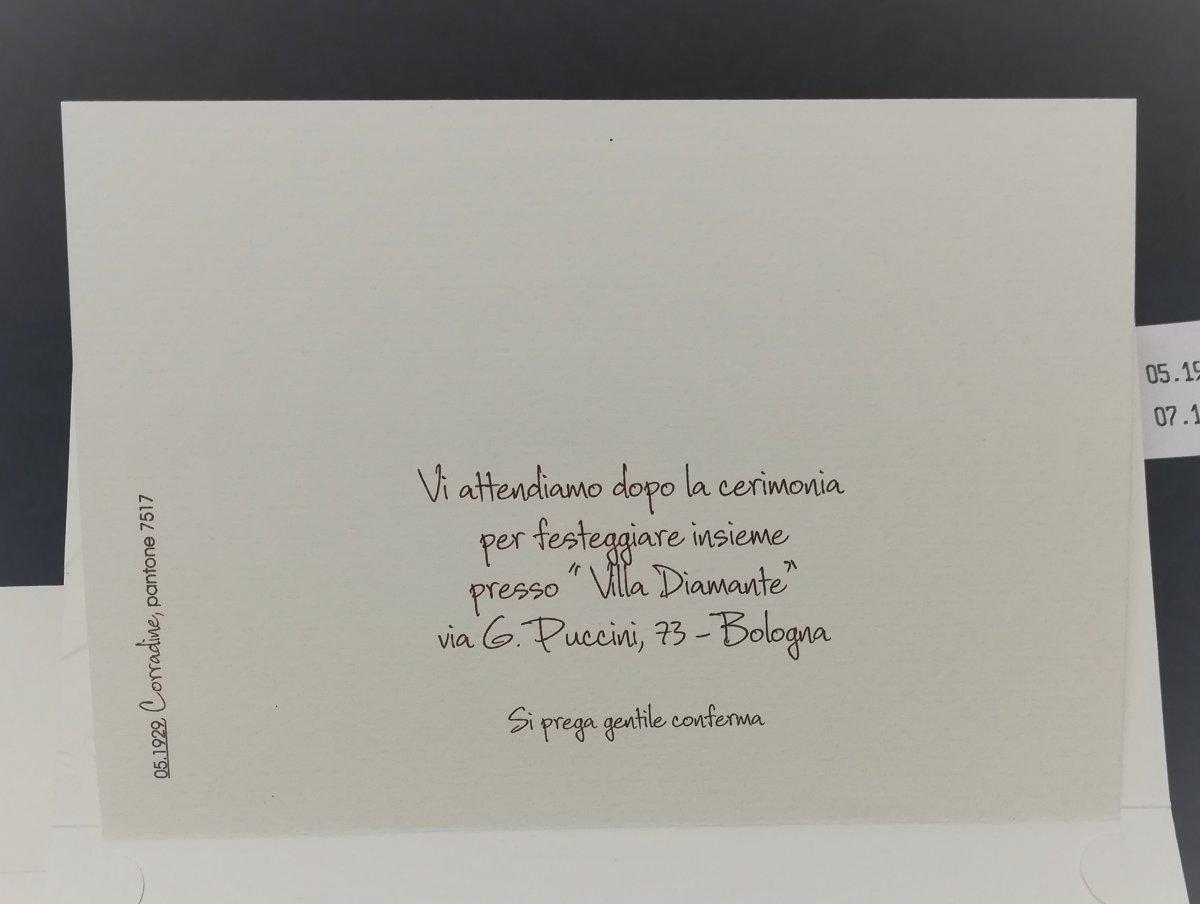 Vi attendiamo dopo la cerimonia
per festeggiare insieme
presso “Villa Diamante”
via G. Puccini, 73 - Bologna
Si prega gentile conferma
05.1929 Corradine, pantone 7517
05.19
07.1